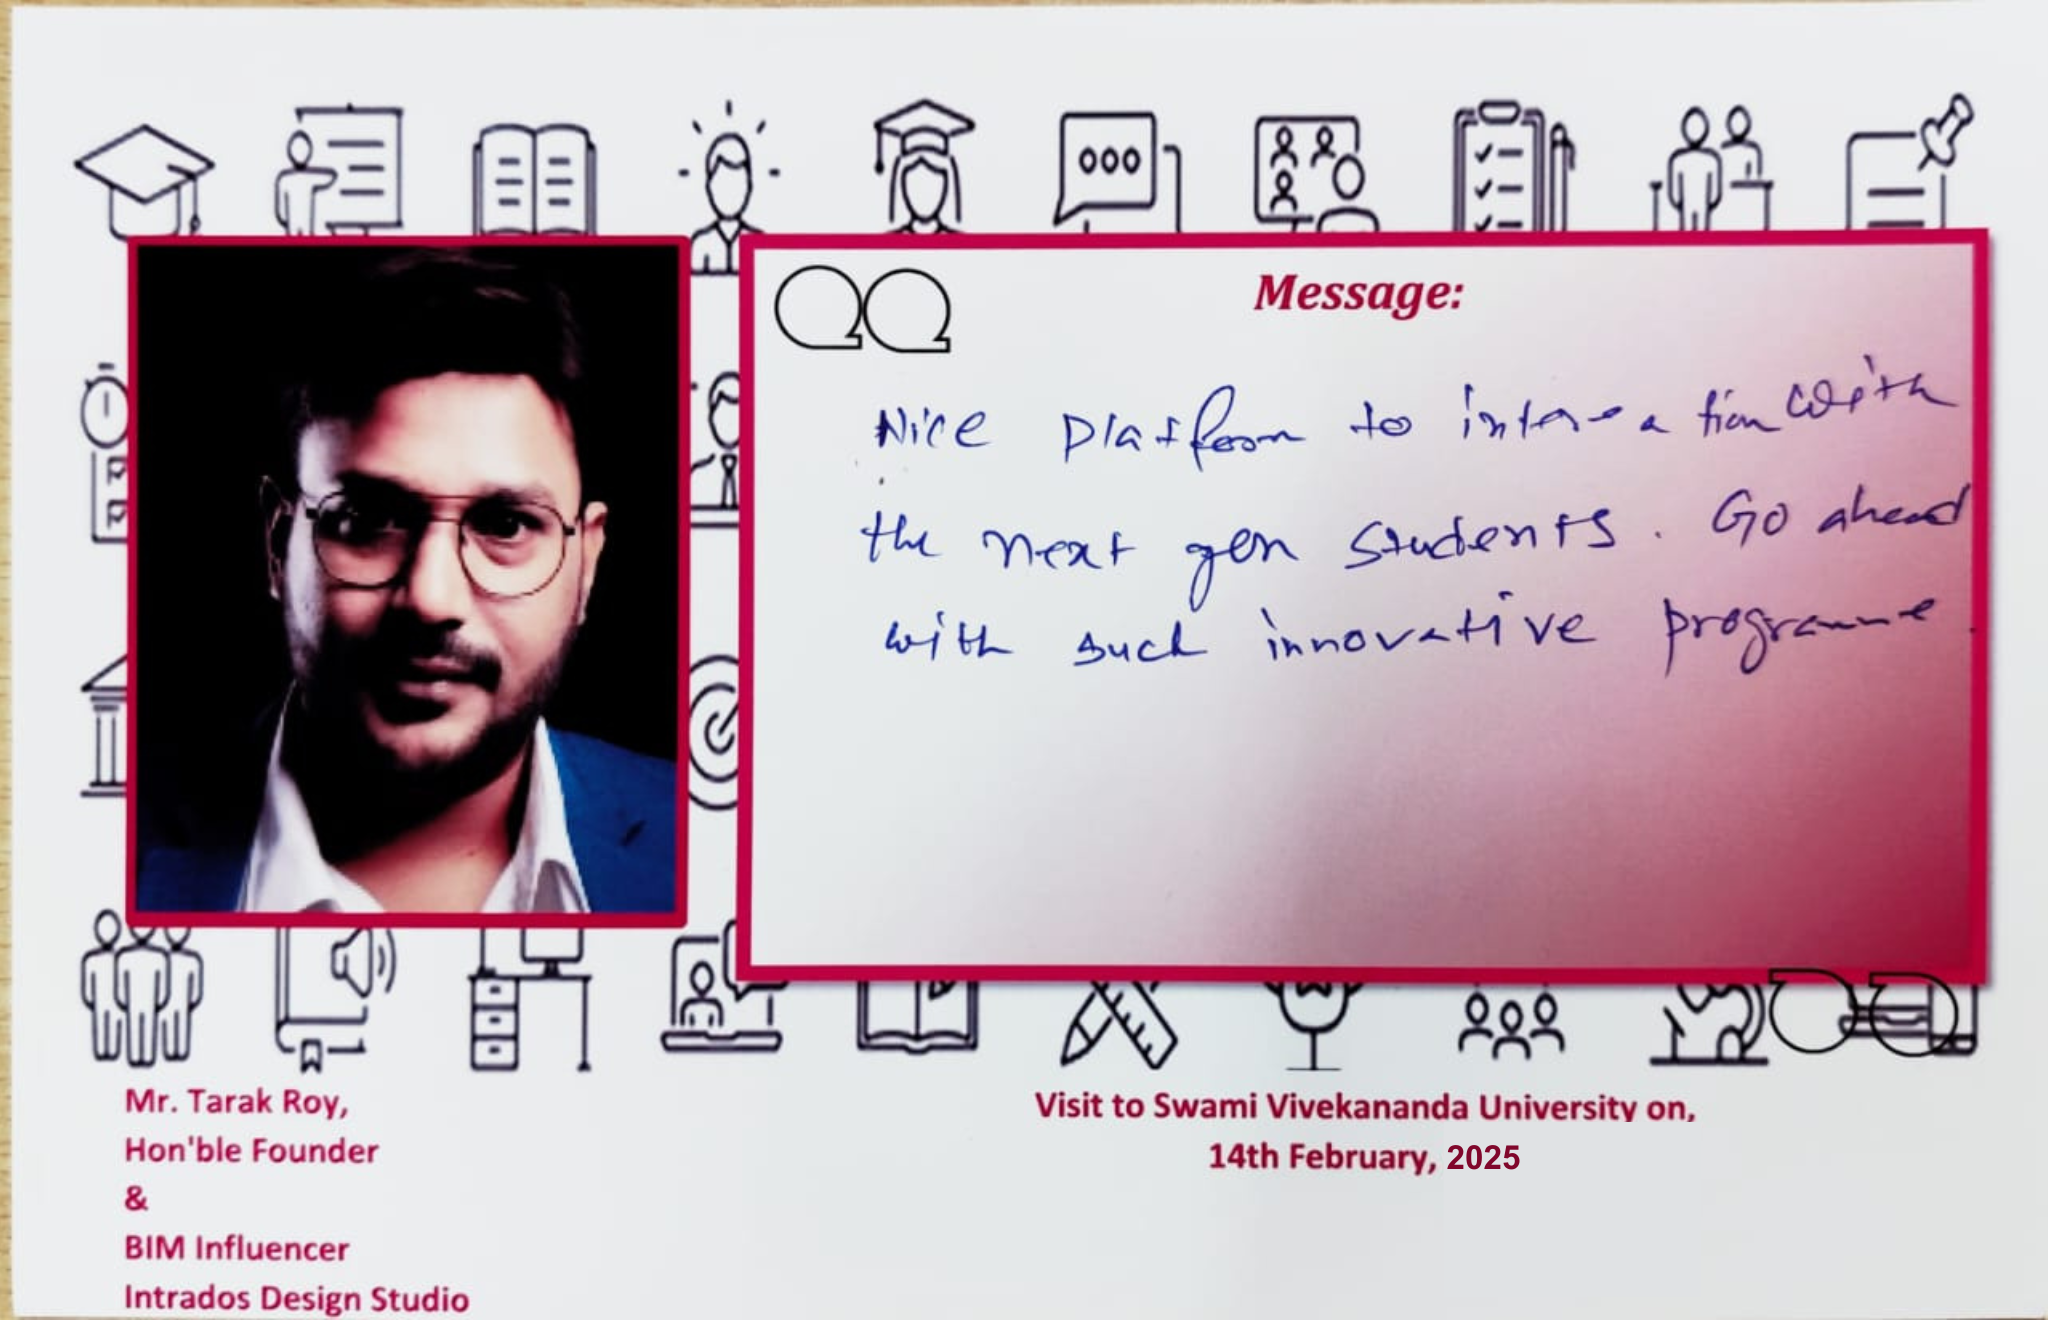 Message:
Nice platform to interaction with
the next gen students. Go ahead
with such innovative programme.
Mr. Tarak Roy,
Hon'ble Founder
&
BIM Influencer
Intrados Design Studio
Visit to Swami Vivekananda University on,
14th February, 2025